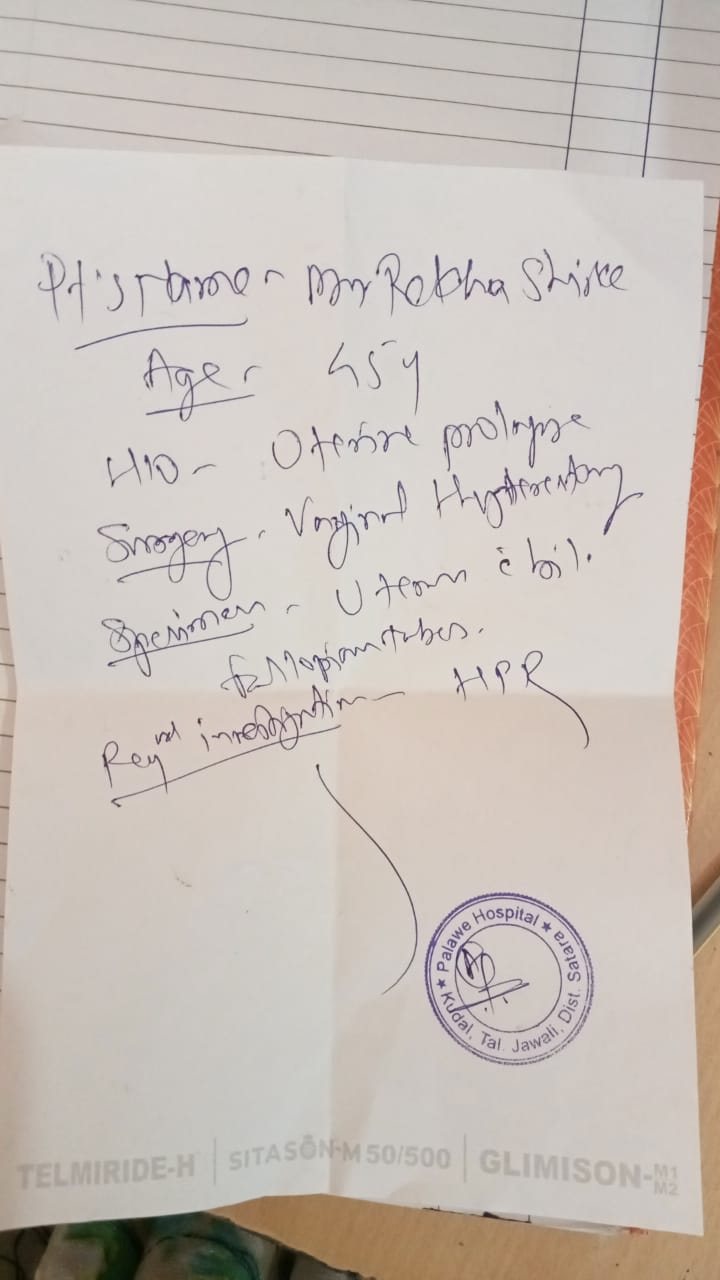 Pt's Name - Mrs Rekha Shirke
Age - 45y
H/O - Uterine prolapse
Surgery - Vaginal Hysterectomy
Specimen - Uterus c̄ bil.
fallopian tubes.
Reqrd investigation - HPR
★ Palawe Hospital ★
Kudal, Tal. Jawali, Dist. Satara
TELMIRIDE-H | SITASON-M 50/500 | GLIMISON-M1
M2